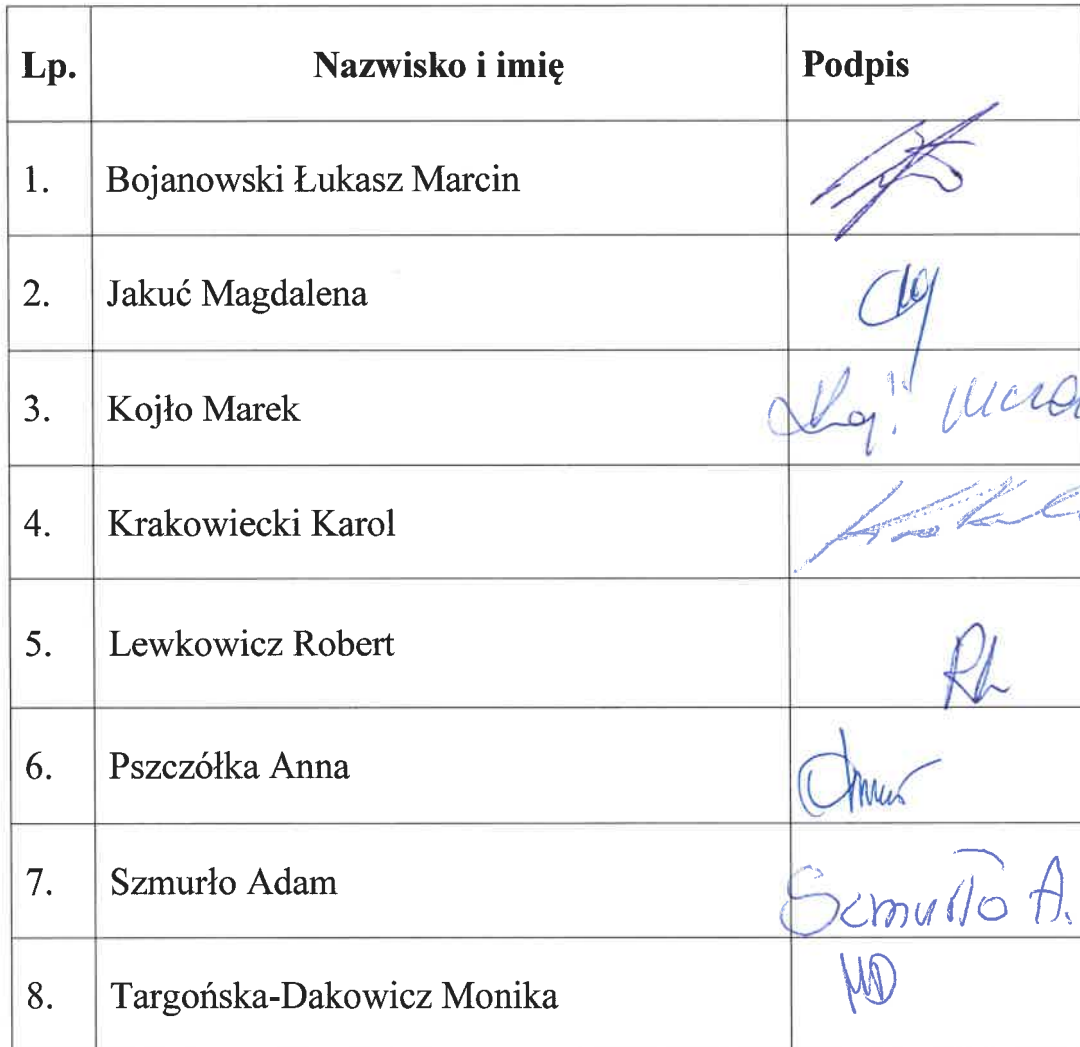 Lp. Nazwisko i imię Podpis
1. Bojanowski Łukasz Marcin
2. Jakuć Magdalena
3. Kojło Marek
4. Krakowiecki Karol
5. Lewkowicz Robert
6. Pszczółka Anna
7. Szmurło Adam Szmurło A.
8. Targońska-Dakowicz Monika MD